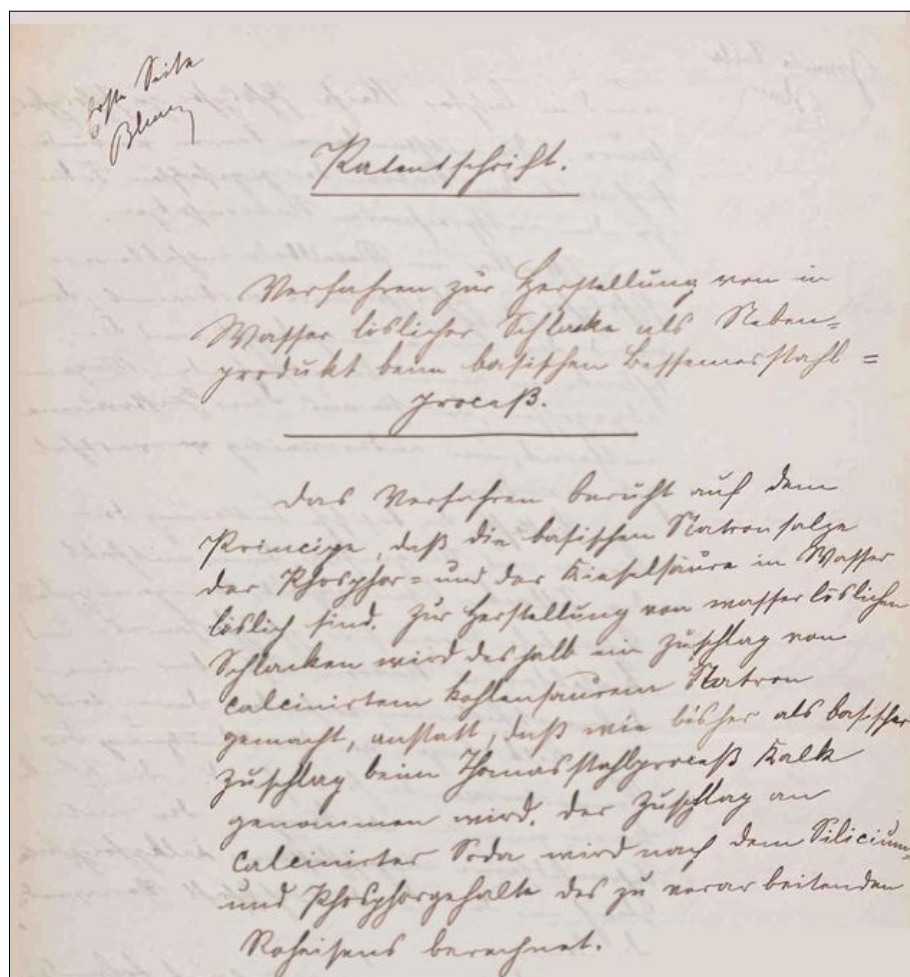 erste Seite
Patentschrift.
Verfahren zur Herstellung von in
Wasser löslicher Schlacke als Neben=
produkt beim basischen Bessemerstahl=
proceß.
Das Verfahren beruht auf dem
Principe, daß die basischen Natronsalze
der Phosphor= und der Kieselsäure in Wasser
löslich sind. Zur Herstellung von wasserlöslichen
Schlacken wird deshalb ein Zuschlag von
calcinirtem kohlensaurem Natron
gemacht, anstatt, daß wie bisher als basischer
Zuschlag beim Thomasstahlproceß Kalk
genommen wird. Der Zuschlag an
calcinirter Soda wird nach dem Silicium=
und Phosphorgehalte des zu verarbeitenden
Roheisens berechnet.